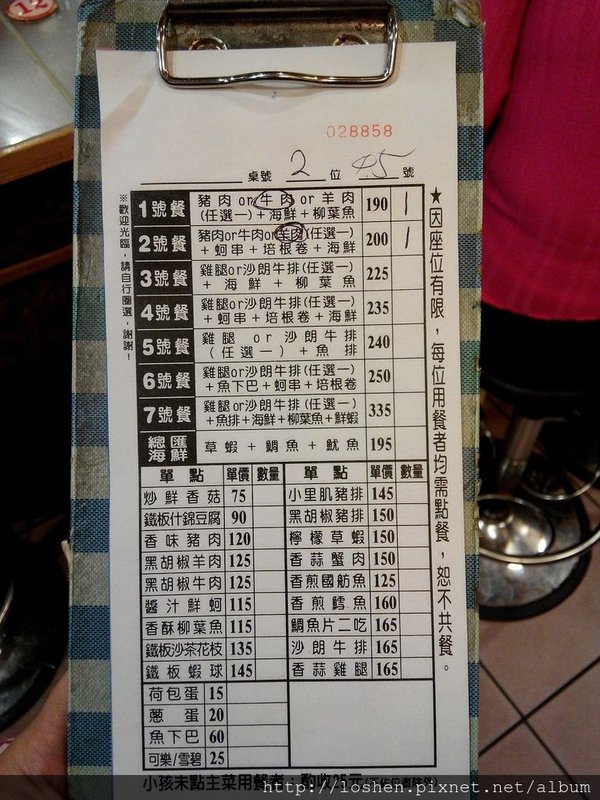 12
028858
桌號 2 位 45 號
※歡迎光臨，請自行圈選，謝謝！
1號餐 豬肉or牛肉or羊肉 190 1
(任選一)+海鮮+柳葉魚
2號餐 豬肉or牛肉or羊肉(任選一) 200 1
+蚵串+培根卷+海鮮
3號餐 雞腿or沙朗牛排(任選一) 225
+海鮮+柳葉魚
4號餐 雞腿or沙朗牛排(任選一) 235
+蚵串+培根卷+海鮮
5號餐 雞腿or沙朗牛排 240
(任選一)+魚排
6號餐 雞腿or沙朗牛排(任選一) 250
+魚下巴+蚵串+培根卷
7號餐 雞腿or沙朗牛排(任選一) 335
+魚排+海鮮+柳葉魚+鮮蝦
總匯海鮮 草蝦+鯛魚+魷魚 195
★因座位有限，每位用餐者均需點餐，恕不共餐。
單點 單價 數量 單點 單價 數量
炒鮮香菇 75 小里肌豬排 145
鐵板什錦豆腐 90 黑胡椒豬排 150
香味豬肉 120 檸檬草蝦 150
黑胡椒羊肉 125 香蒜蟹肉 150
黑胡椒牛肉 125 香煎國魴魚 125
醬汁鮮蚵 115 香煎鱈魚 160
香酥柳葉魚 115 鯛魚片二吃 165
鐵板沙茶花枝 135 沙朗牛排 165
鐵板蝦球 145 香蒜雞腿 165
荷包蛋 15
蔥蛋 20
魚下巴 60
可樂/雪碧 25
小孩未點主菜用餐者：酌收25元(不佔位者除外)
http://loshen.pixnet.net/album